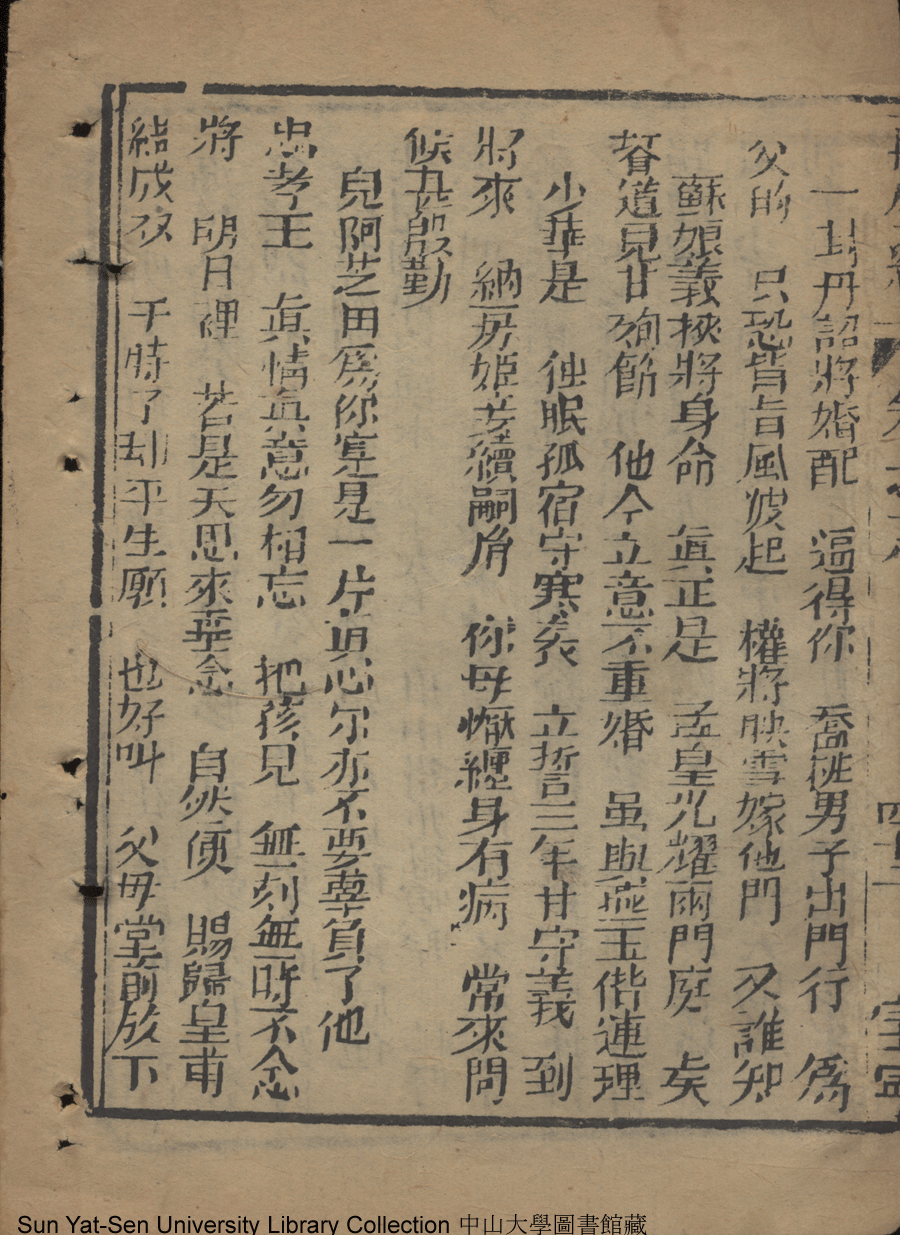 一封丹詔將婚配　逼得你　喬粧男子出門行　爲
父的　只恐皆旨風波起　權將映雪嫁他門　又誰知
蘇娘義挾將身命　眞正是　孟皇光耀兩門庭　矣
督道兒甘殉節　他今立意不重婚　虽與燕玉偕連理
少華是　独眠孤宿守寒衾　立誓三年甘守義　到
將來　納一房姬妾續嗣胤　你母懨纏身有病　常來問
候甚殷勤
兒阿芝田爲你寔是一片真心尔亦不要辜負了他
忠孝王　眞情眞意勿相忘　把孩兒　無一刻無一時不念
將　明日裡　若是天恩來垂念　自然便　賜歸皇甫
結成双　于時了却平生願　也好叫　父母堂前放下
Sun Yat-Sen University Library Collection 中山大學圖書館藏